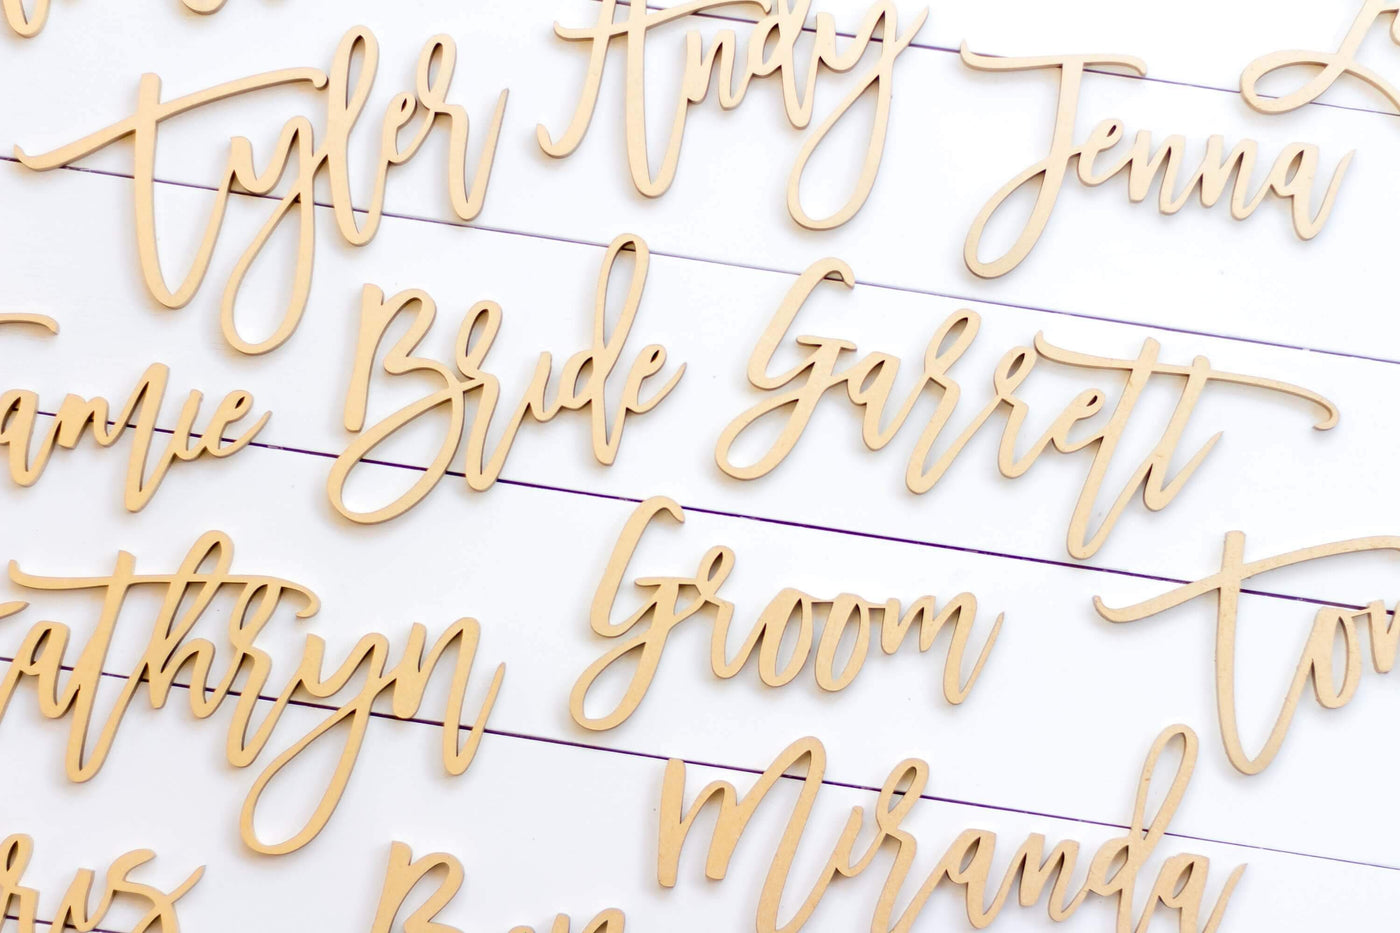 Tyler Andy Jenna
amie Bride Garrett
Kathryn Groom Tom
ris Ben Miranda